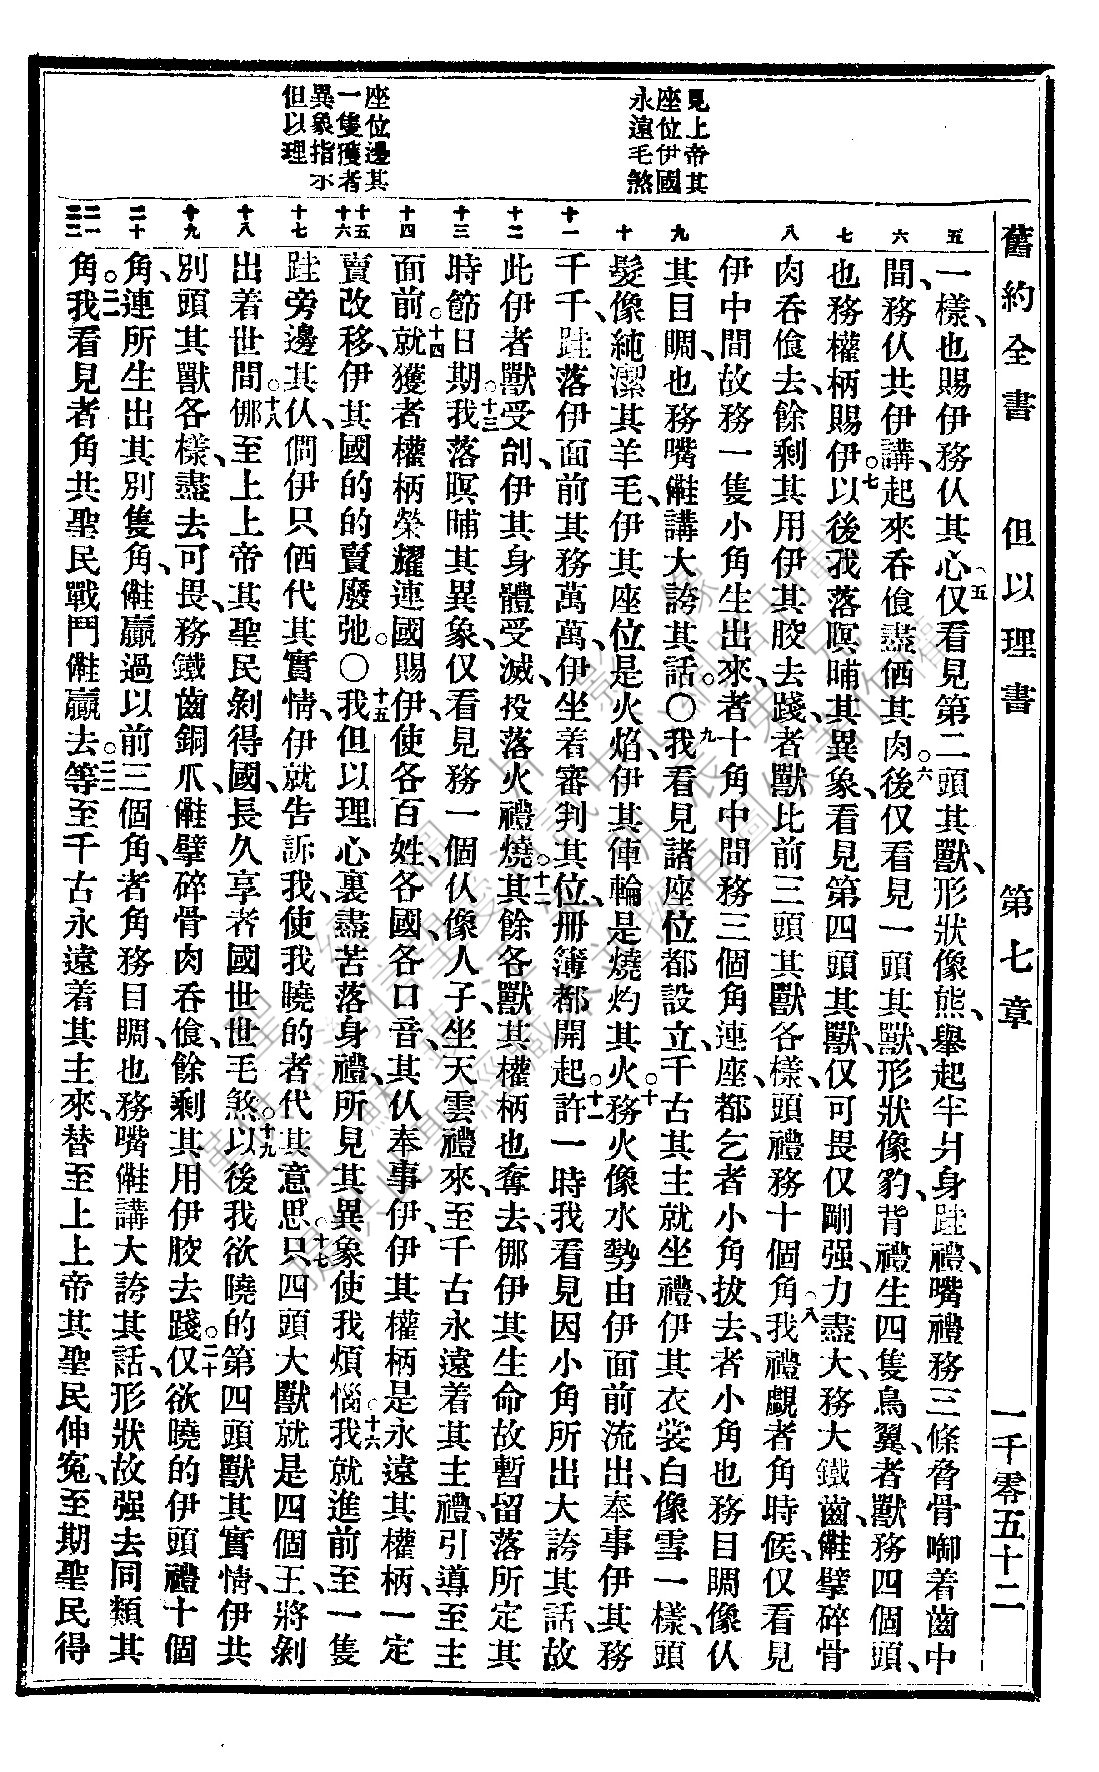 舊約全書　但以理書　第七章　一千零五十二
見上帝其
座位伊國
永遠毛煞
座位邊其
一隻獲者
異象指示
但以理
五
六
七
八
九
十
十一
十二
十三
十四
十五
十六
十七
十八
十九
二十
二一
二二
一樣、也賜伊務仈其心。五仅看見第二頭其獸、形狀像熊、舉起半爿身跬禮、嘴禮務三條脅骨啣着齒中
間、務仈共伊講、起來吞飡盡価其肉。六後仅看見一頭其獸、形狀像豹、背禮生四隻鳥翼、者獸務四個頭、
也務權柄賜伊。七以後我落暝晡其異象、看見第四頭其獸、仅可畏仅剛强、力盡大、務大鐵齒、儺擘碎骨
肉吞飡去、餘剩其用伊其骹去踐、者獸比前三頭其獸各樣、頭禮務十個角。八我禮覷者角時候、仅看見
伊中間故務一隻小角生出來、者十角中間務三個角連座都乞者小角拔去、者小角也務目睭像仈
其目睭、也務嘴儺講大誇其話。〇九我看見諸座位都設立、千古其主就坐禮、伊其衣裳白像雪一樣、頭
髮像純潔其羊毛、伊其座位是火焰、伊其俥輪是燒灼其火。十務火像水勢由伊面前流出、奉事伊其務
千千、跬落伊面前其務萬萬、伊坐着審判其位、册簿都開起。十一許一時我看見因小角所出大誇其話、故
此伊者獸受刣、伊其身體受滅、投落火禮燒。十二其餘各獸其權柄也奪去、㑚伊其生命故暫留落所定其
時節日期。十三我落暝晡其異象、仅看見務一個仈像人子、坐天雲禮來、至千古永遠着其主禮、引導至主
面前。十四就獲者權柄榮耀連國賜伊、使各百姓、各國、各口音、其仈奉事伊、伊其權柄是永遠其權柄、一定
賣改移、伊其國的的賣廢弛。〇十五我但以理心裏盡苦落身禮、所見其異象使我煩惱。十六我就進前至一隻
跬旁邊其仈、㑚伊只価代其實情、伊就告訴我、使我曉的者代其意思。十七只四頭大獸就是四個王、將剝
出着世間。十八㑚至上上帝其聖民剝得國、長久享者國世世毛煞。十九以後我欲曉的第四頭獸其實情、伊共
別頭其獸各樣、盡去可畏、務鐵齒銅爪、儺擘碎骨肉吞飡、餘剩其用伊骹去踐。二十仅欲曉的伊頭禮十個
角、連所生出其別隻角、儺贏過以前三個角、者角務目睭也務嘴儺講大誇其話、形狀故强去同類其
角。二一我看見者角共聖民戰鬥儺贏去。二二等至千古永遠着其主來、替至上上帝其聖民伸冤、至期聖民得